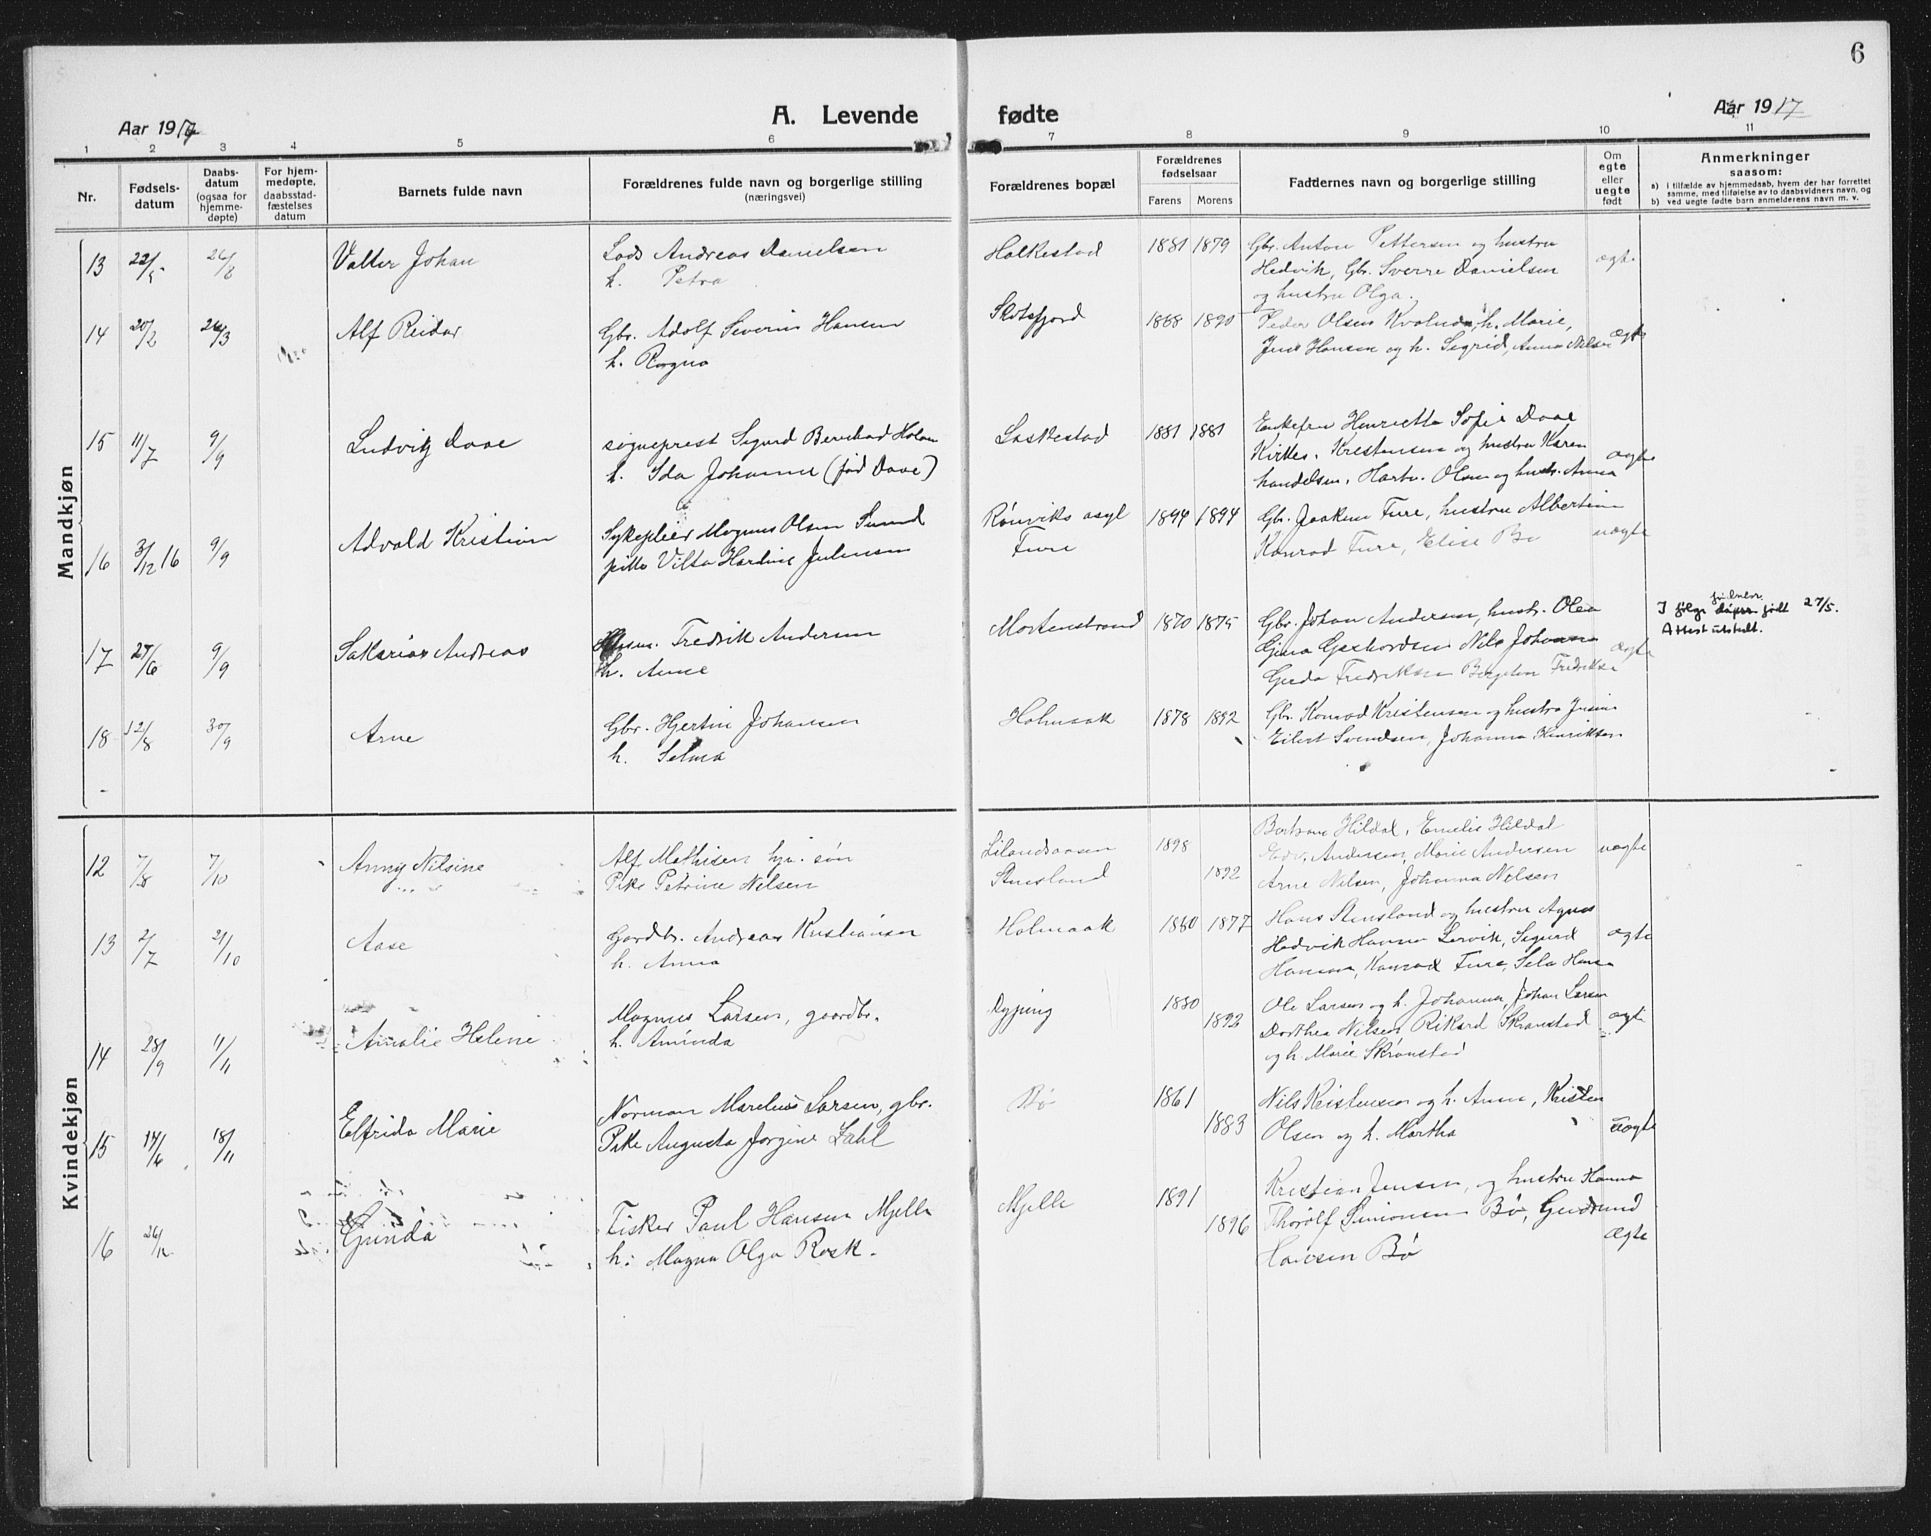 6
Aar 1917 A. Levende fødte Aar 1917
1 2 3 4 5 6 7 8 9 10 11
Nr.
Fødsels-
datum
Daabs-
datum
(ogsaa for
hjemme-
døpte)
For hjem-
medøpte,
daabsstad-
fæstelses
datum
Barnets fulde navn
Forældrenes fulde navn og borgerlige stilling
(næringsvei)
Forældrenes bopæl
Forældrenes
fødselsaar
Farens Morens
Faddernes navn og borgerlige stilling
Om
egte
eller
uegte
født
Anmerkninger
saasom:
a) i tilfælde av hjemmedaab, hvem der har forrettet
samme, med tilføielse av to daabsvidners navn, og
b) ved uegte fødte barn anmelderens navn m. v.
Mandkjøn
13 22/5 26/8 Valter Johan
Lods Andreas Danielsen
h. Petra
Holkestad 1881 1879
Gbr. Anton Pettersen og hustru
Hedvik, Gbr. Sverre Danielsen
og hustru Olga.
ægte
14 20/2 26/3 Alf Reidar
Gbr. Adolf Severin Hansen
h. Ragna
Skotsfjord 1888 1890
Peder Olsen Kvalnes, h. Marie,
Jens Hansen og h. Sigrid, Anna Nilsen
ægte
15 11/7 9/9 Ludvig Daae
sogneprest Sigurd Bernhad Holam
h. Ida Johanne (fød Daae)
Laskestad 1881 1881
Enkefru Henriette Sofie Daae
Kirkes. Kristensen og hustru Karen
handelsm. Hartv. Olsen og hustr. Anna
ægte
16 3/12 16 9/9 Advald Kristian
Sykepleier Magnus Olsen Sund
pike Vilta Hardine Julensen
Rønviks asyl
Fure
1894 1894
Gbr. Joakim Fure, hustru Albertine
Konrad Fure, Elise Bø
uægte
17 27/6 9/9 Sakarias Andreas
Fredrik Andersen
h. Anne
Mortenstrand 1870 1875
Gbr. Johan Andersen, hustr. Olea
Gina Gerhardsen Nils Johansen
Gerda Fredriksen Bergiton Fredriksen
ægte
I følge født 27/5.
Attest utstedt.
18 12/8 30/9 Arne
Gbr. Hjertin Johansen
h. Selma
Holmaak 1878 1892
Gbr. Konrad Kristensen og hustru
Eilert Svendsen, Johanna Henriksen
Kvindekjøn
12 7/8 7/10 Anny Nilsine
Alf Mathisen hjv. søn
Pike Petrine Nelsen
Lilandsaasen
Stensland
1898
1892
Bertram Hildal, Emelie Hildal
Edv. Andersen, Marie Andresen
Arne Nilsen, Johanna Nelsen
uægte
13 2/7 21/10 Aase
Gardbr. Andreas Kristiansen
h. Anna
Holmaak 1860 1877
Hans Stensland og hustru Agnes
Hedvik Hansen Lervik, Sigurd
Hansen, Konrad Fure, Sela Hansen
ægte
14 28/9 11/11 Amalie Helene
Magnus Larsen, gaardbr.
h. Aminda
Dyping 1880
1892
Ole Larsen og h. Johanna, Johan Larsen
Dorthea Nilsen Rikard Skranstad
og h. Marie Skranstad
ægte
15 14/6 18/11 Elfrida Marie
Norman Marelius Larsen, gbr.
Pike Augusta Jørgine Zahl
Bø 1861
1883
Nils Kristensen og h. Anna, Kristen
Olsen og h. Martha
uægte
16 26/12 Gunda
Fisker Paul Hansen Mjelle
h: Magna Olga Rask.
Mjelle 1891
1896
Kristian Jensen, og hustru Hanna
Thorolf Simonsen Bø, Gudrund
Hansen Bø
Ægte